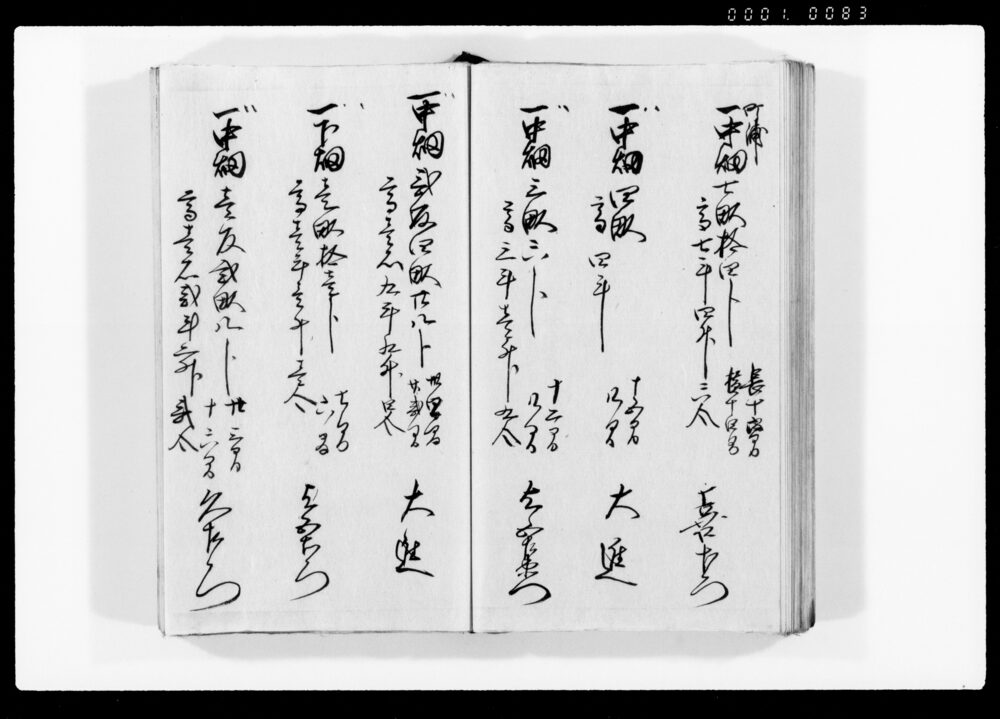 0001. 0083
町浦
一中畑 七畝拾四卜
長十六間
横十四間
高七斗四升六合
喜左衛門
〃
一中畑 四畝
十五間
八間
高四斗
大進
〃
一中畑 三畝六卜
十二間
八間
高三斗壱升九合
〃
一中畑 弐反四畝廿八卜
卅四間
廿弐間
高壱石九斗九升四合
大進
〃
一下畑 壱畝拾壱卜
七間
六間
高壱斗壱升壱合
〃
一中畑 壱反弐畝八卜
廿三間
十六間
高壱石弐斗
久左衛門